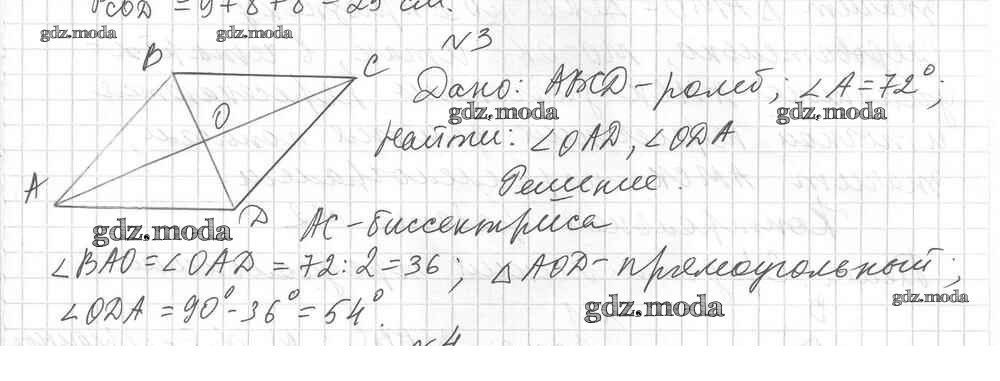 PCOD = 9 + 8 + 8 = 25 см.
gdz.moda gdz.moda
N 3
B C O A D
Дано: ABCD - ромб; ∠A = 72°;
gdz.moda gdz.moda
Найти: ∠OAD, ∠ODA
Решение.
gdz.moda AC - биссектриса
∠BAO = ∠OAD = 72 : 2 = 36; △AOD - прямоугольный;
gdz.moda gdz.moda
∠ODA = 90° - 36° = 54°.
N 4